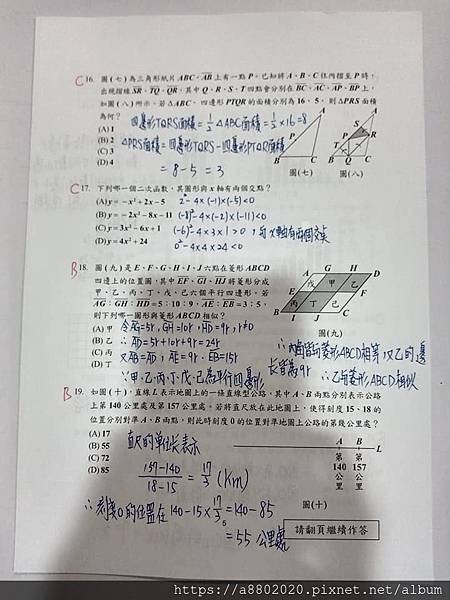 C 16. 圖(七)為三角形紙片ABC，AB上有一點P。已知將A、B、C往內摺至P時，
出現摺線SR、TQ、QR，其中Q、R、S、T四點會分別在BC、AC、AP、BP上，
如圖(八)所示。若△ABC、四邊形PTQR的面積分別為16、5，則△PRS面積
為何？
(A) 1
(B) 2
(C) 3
(D) 4
四邊形TQRS面積=1/2△ABC面積=1/2×16=8
△PRS面積=四邊形TQRS-四邊形PTQR面積
=8-5=3
A
P
B
C
圖(七)
A
S
P
R
T
B
Q
C
圖(八)
C 17. 下列哪一個二次函數，其圖形與x軸有兩個交點？
(A) y=-x²+2x-5 2²-4×(-1)×(-5)<0
(B) y=-2x²-8x-11 (-8)²-4×(-2)×(-11)<0
(C) y=3x²-6x+1 (-6)²-4×3×1>0，与x軸有兩個交点
(D) y=4x²+24 0²-4×4×24<0
B 18. 圖(九)是E、F、G、H、I、J六點在菱形ABCD
四邊上的位置圖，其中EF、GI、HJ將菱形分成
甲、乙、丙、丁、戊、己六個平行四邊形。若
AG：GH：HD=5：10：9，AE：EB=3：5，
則下列哪一個圖形與菱形ABCD相似？
(A) 甲 令AG=5r，GH=10r，HD=9r，r≠0
(B) 乙 ∴AD=5r+10r+9r=24r
(C) 丙 又AB=AD，AE=9r，EB=15r
(D) 丁 ∵甲、乙、丙、丁、戊、己為平行四邊形
A G H D
戊 甲 乙
E F
丙 丁 己
B I J C
圖(九)
∴內角皆与菱形ABCD相等，又乙的邊
長皆為9r
∴乙与菱形ABCD相似
B 19. 如圖(十)，直線L表示地圖上的一條直線型公路，其中A、B兩點分別表示公路
上第140公里處及第157公里處。若將直尺放在此地圖上，使得刻度15、18的
位置分別對準A、B兩點，則此時刻度0的位置對準地圖上公路的第幾公里處？
(A) 17
(B) 55
(C) 72
(D) 85
直尺的單位長表示
157-140/18-15=17/3(km)
∴刻度0的位置在140-15×17/3=140-85
5
=55公里處
A B
L
第 第
140 157
公 公
里 里
圖(十)
請翻頁繼續作答
https://a8802020.pixnet.net/album